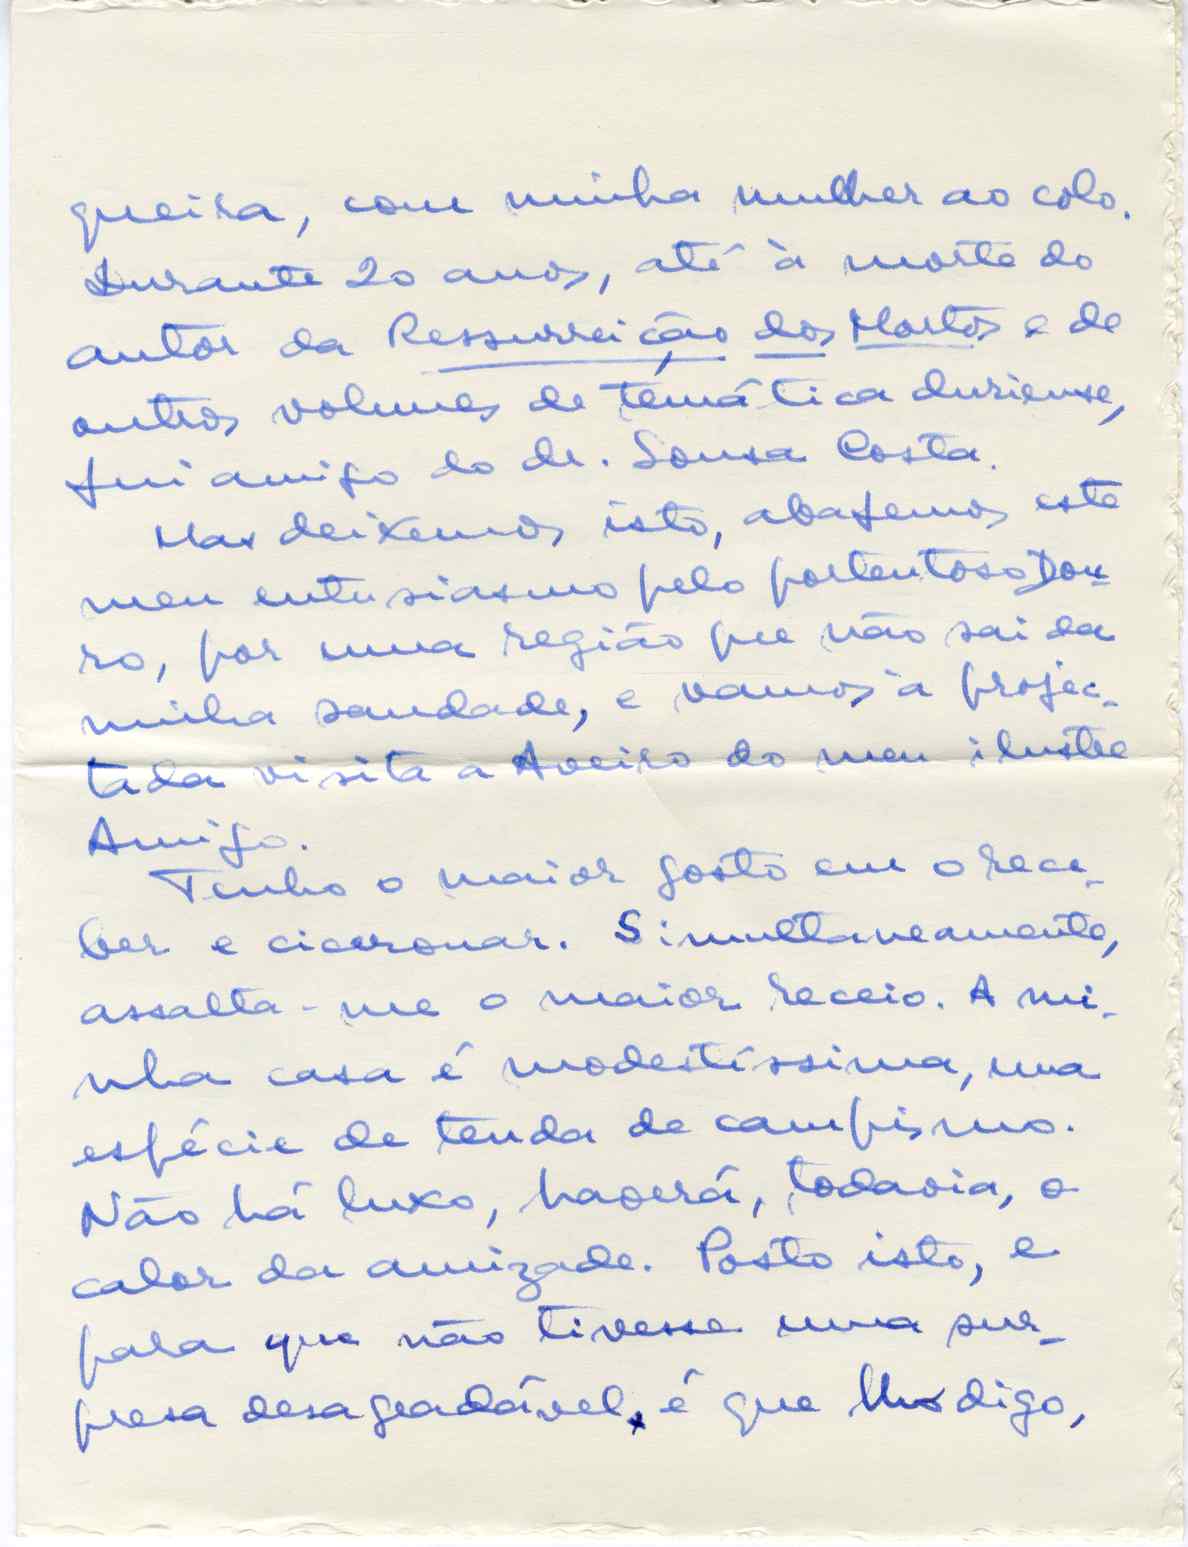 queira, com minha mulher ao colo.
Durante 20 anos, até à morte do
autor da Ressurreição dos Mortos e de
outros volumes de temática duriense,
fui amigo do dr. Sousa Costa.
Mas deixemos isto, abafemos este
meu entusiasmo pelo portentoso Dou-
ro, por uma região que não sai da
minha saudade, e vamos à projec-
tada visita a Aveiro do meu ilustre
Amigo.
Tenho o maior gosto em o rece-
ber e ciceronar. Simultaneamente,
assalta-me o maior receio. A mi-
nha casa é modestíssima, uma
espécie de tenda de campismo.
Não há luxo, haverá, todavia, o
calor da amizade. Posto isto, e
para que não tivesse uma sur-
presa desagradável, é que lho digo,